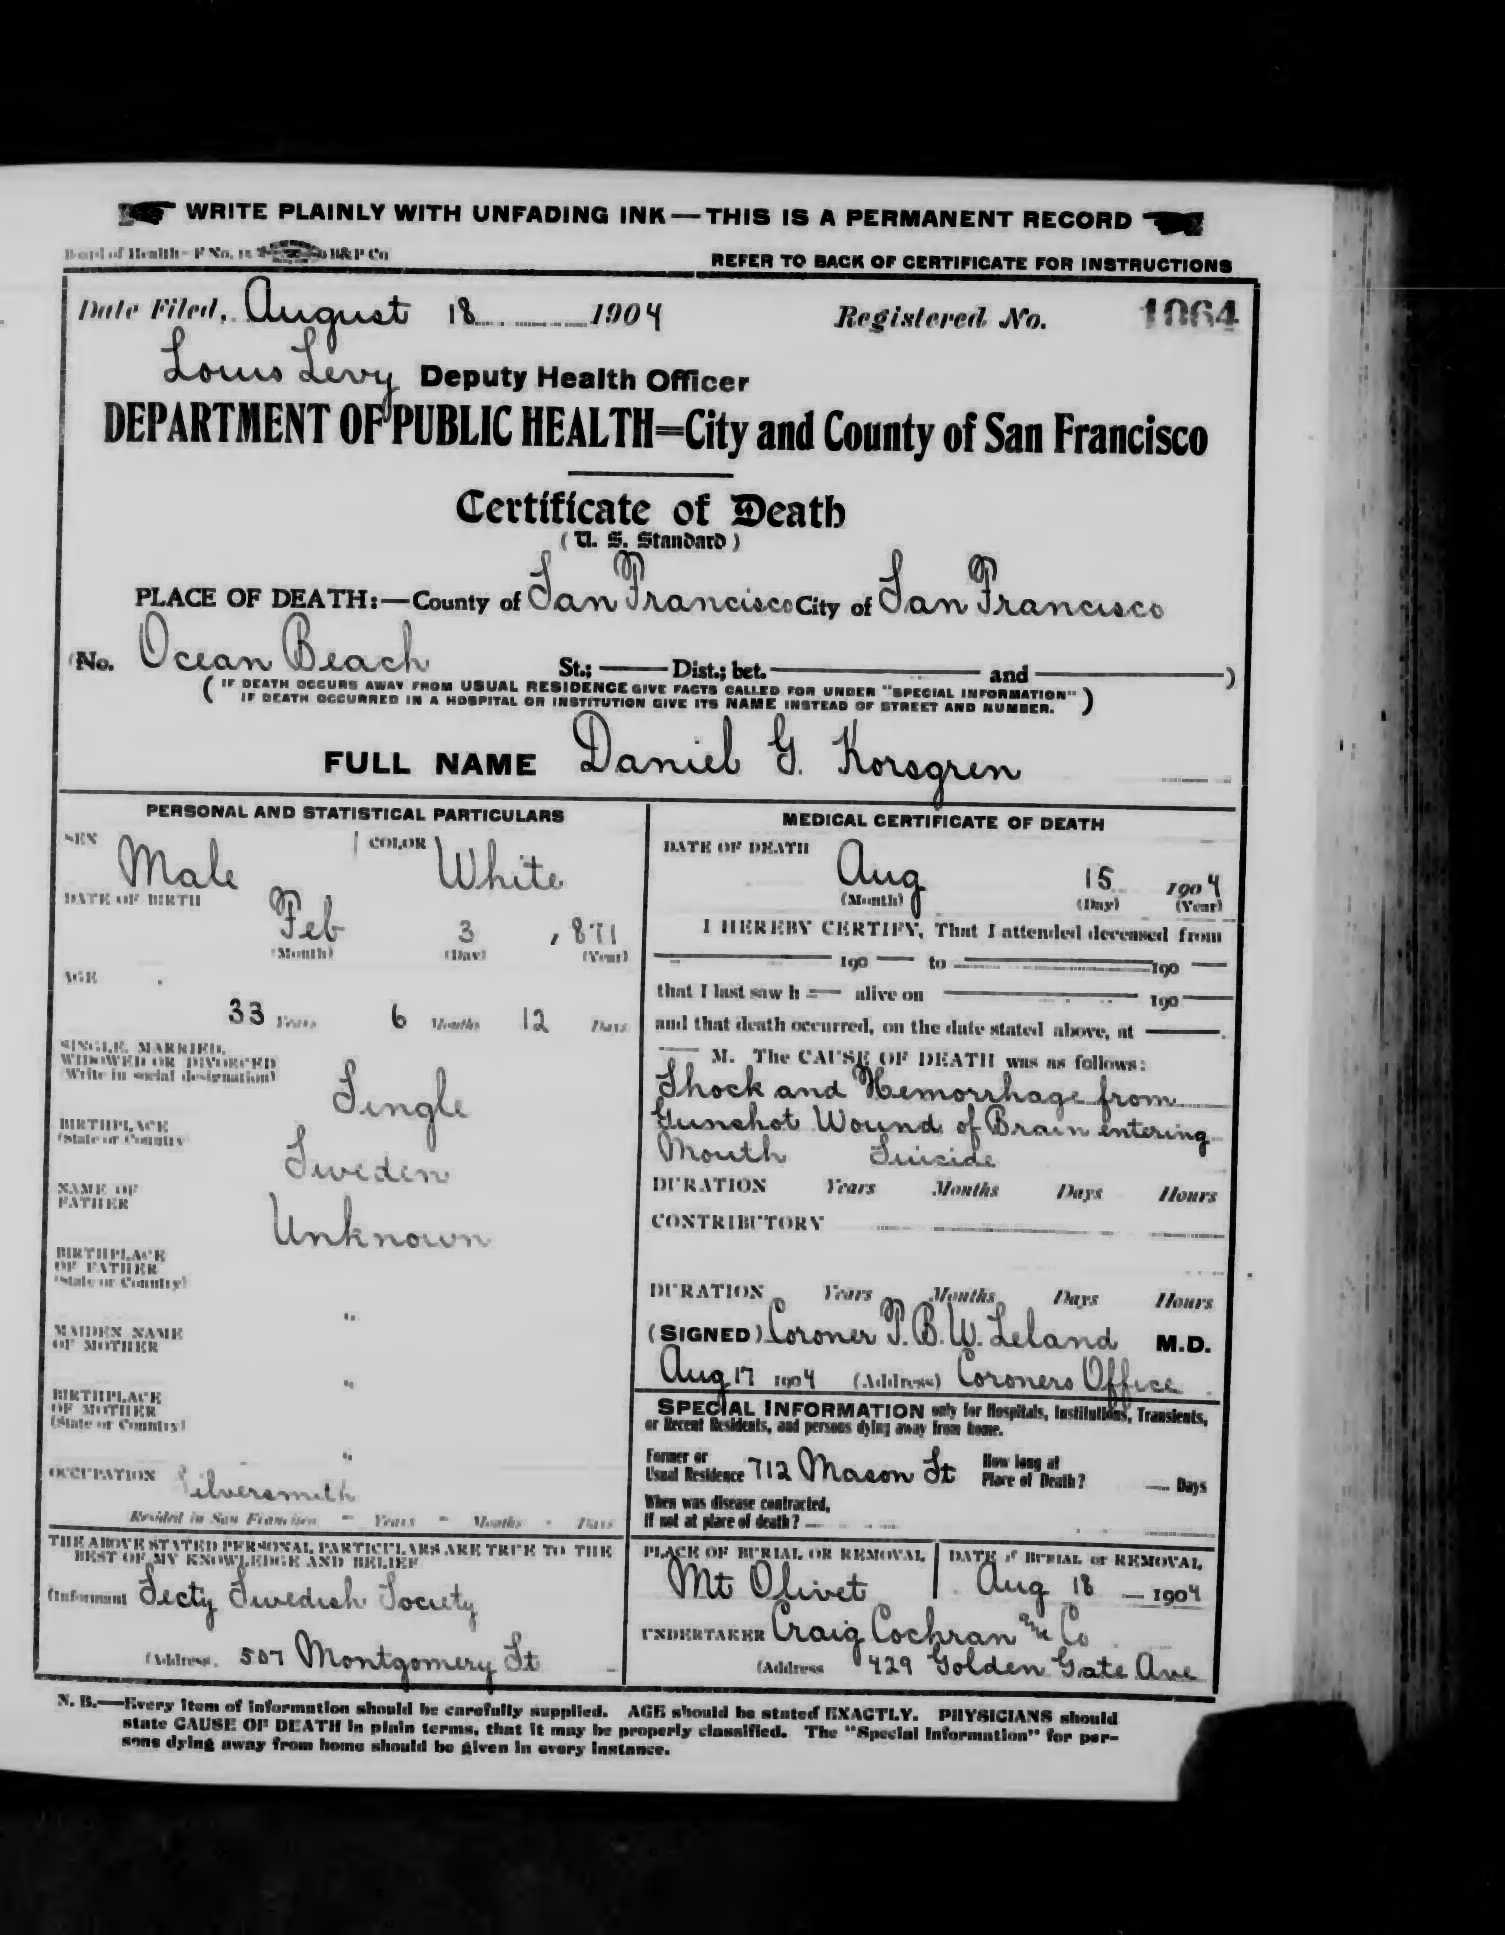 WRITE PLAINLY WITH UNFADING INK — THIS IS A PERMANENT RECORD
Board of Health - F No. 11 B&P Co
REFER TO BACK OF CERTIFICATE FOR INSTRUCTIONS
Date Filed, August 18 1904 Registered No. 1064
Louis Levy Deputy Health Officer
DEPARTMENT OF PUBLIC HEALTH=City and County of San Francisco
Certificate of Death
(U. S. Standard)
PLACE OF DEATH:—County of San Francisco City of San Francisco
(No. Ocean Beach St.; — Dist.; bet. — and —)
(IF DEATH OCCURS AWAY FROM USUAL RESIDENCE GIVE FACTS CALLED FOR UNDER "SPECIAL INFORMATION"
IF DEATH OCCURRED IN A HOSPITAL OR INSTITUTION GIVE ITS NAME INSTEAD OF STREET AND NUMBER.)
FULL NAME Daniel G. Korsgren
PERSONAL AND STATISTICAL PARTICULARS
SEX Male COLOR White
DATE OF BIRTH Feb 3, 871
(Month) (Day) (Year)
AGE
33 Years 6 Months 12 Days
SINGLE, MARRIED,
WIDOWED OR DIVORCED
(Write in social designation) Single
BIRTHPLACE
(State or Country) Sweden
NAME OF
FATHER Unknown
BIRTHPLACE
OF FATHER
(State or Country) "
MAIDEN NAME
OF MOTHER "
BIRTHPLACE
OF MOTHER
(State or Country) "
OCCUPATION Silversmith
Resided in San Francisco - Years - Months - Days
THE ABOVE STATED PERSONAL PARTICULARS ARE TRUE TO THE
BEST OF MY KNOWLEDGE AND BELIEF
(Informant Secty Swedish Society
(Address, 507 Montgomery St
MEDICAL CERTIFICATE OF DEATH
DATE OF DEATH Aug 15 1904
(Month) (Day) (Year)
I HEREBY CERTIFY, That I attended deceased from
— 190 — to — 190 —
that I last saw h — alive on — 190 —
and that death occurred, on the date stated above, at —
— M. The CAUSE OF DEATH was as follows:
Shock and Hemorrhage from
Gunshot Wound of Brain entering
Mouth Suicide
DURATION Years Months Days Hours
CONTRIBUTORY
DURATION Years Months Days Hours
(SIGNED) Coroner T. B. W. Leland M.D.
Aug 17 1904 (Address) Coroners Office
SPECIAL INFORMATION only for Hospitals, Institutions, Transients,
or Recent Residents, and persons dying away from home.
Former or
Usual Residence 712 Mason St How long at
Place of Death? — Days
When was disease contracted,
If not at place of death? —
PLACE OF BURIAL OR REMOVAL DATE of BURIAL or REMOVAL
Mt Olivet Aug 18 — 1904
UNDERTAKER Craig Cochran & Co
(Address 429 Golden Gate Ave
N. B.—Every item of information should be carefully supplied. AGE should be stated EXACTLY. PHYSICIANS should
state CAUSE OF DEATH in plain terms, that it may be properly classified. The "Special Information" for per-
sons dying away from home should be given in every instance.